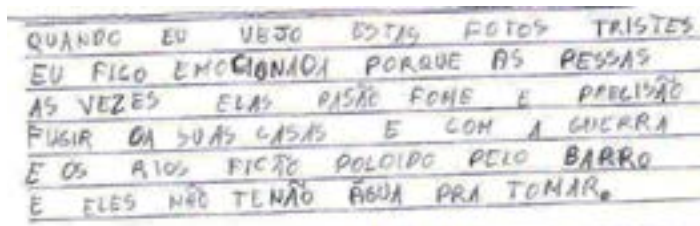 QUANDO EU VEJO ESTAS FOTOS TRISTES
EU FICO EMOCIONADA PORQUE AS PESSAS
AS VEZES ELAS PASÃO FOME E PRECISÃO
FUGIR DA SUAS CASAS E COM A GUERRA
E OS RIOS FICÃO POLOIDO PELO BARRO
E ELES NÃO TENÃO ÁGUA PRA TOMAR.